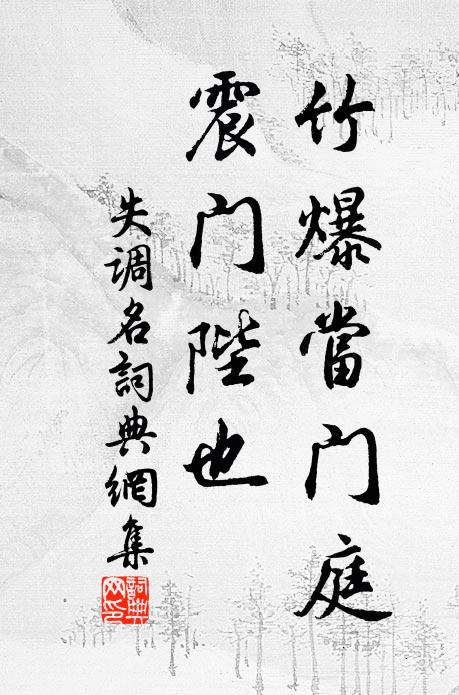 竹爆當门庭
震门陛也
失调名詞典網集
詞典
网印